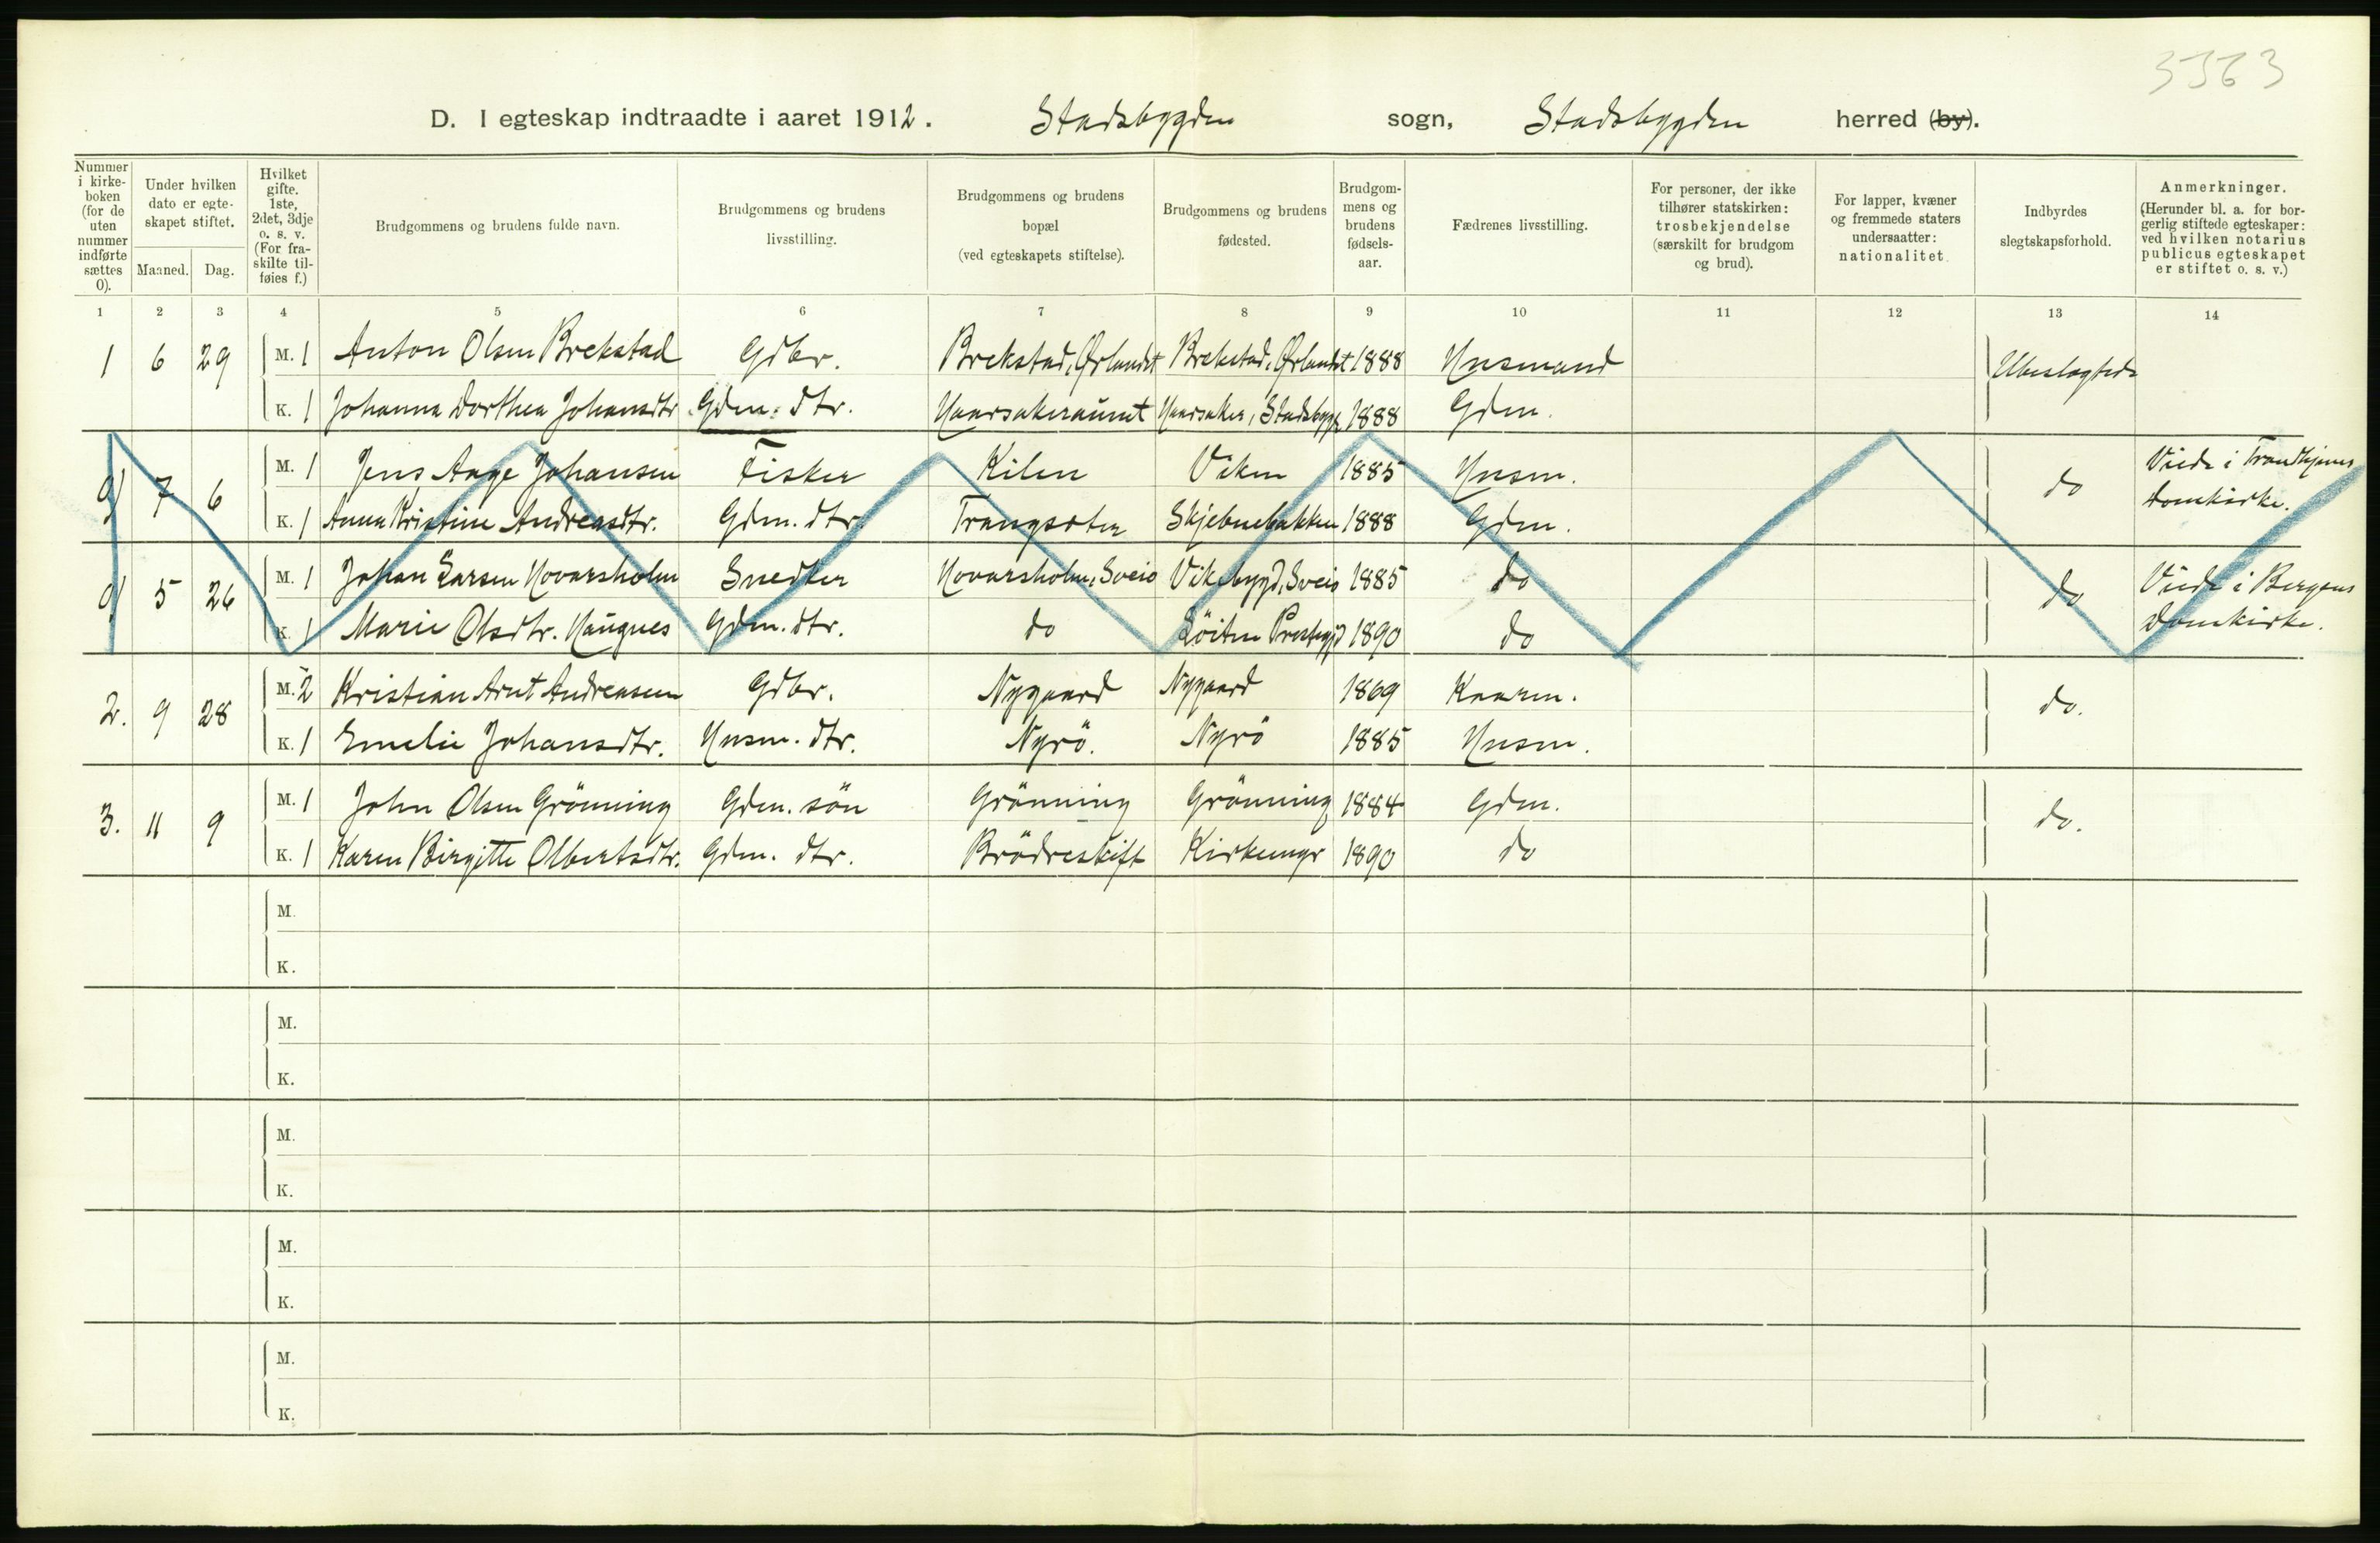 3563
D. I egteskap indtraadte i aaret 1912. Stadsbygden sogn, Stadsbygden herred (by).
Nummer i kirke-boken (for de uten nummer indførte sættes 0).
Under hvilken dato er egte-skapet stiftet.
Maaned. Dag.
Hvilket gifte. 1ste, 2det, 3dje o. s. v. (For fra-skilte til-føies f.)
Brudgommens og brudens fulde navn.
Brudgommens og brudens livsstilling.
Brudgommens og brudens bopæl (ved egteskapets stiftelse).
Brudgommens og brudens fødested.
Brudgom-mens og brudens fødsels-aar.
Fædrenes livsstilling.
For personer, der ikke tilhører statskirken: trosbekjendelse (særskilt for brudgom og brud).
For lapper, kvæner og fremmede staters undersaatter: nationalitet
Indbyrdes slegtskapsforhold.
Anmerkninger. (Herunder bl. a. for bor-gerlig stiftede egteskaper: ved hvilken notarius publicus egteskapet er stiftet o. s. v.)
1 2 3 4 5 6 7 8 9 10 11 12 13 14
1 6 29 M. 1 Anton Olsen Brekstad Gdbr. Brekstad, Ørlandet Brekstad, Ørlandet 1888 Husmand Ubeslegtede
K. 1 Johanna Dorthea Johansdtr. Gdm. dtr. Haarsakeraunet Haarsaker, Stadsbygd 1888 Gdm.
0) 7 6 M. 1 Jens Aage Johansen Fisker Kilen Viken 1885 Husm. do Viede i Trondhjems Domkirke.
K. 1 Anna Kristine Andreasdtr. Gdm. dtr. Trangsoten Skjebnebakken 1888 Gdm.
0) 5 26 M. 1 Johan Larsen Hovarsholm Snedker Hovarsholm, Sveio Vikebygd, Sveio 1885 do do Viede i Bergens Domkirke.
K. 1 Marie Olsdtr. Haugnes Gdm. dtr. do 1890 do
2. 9 28 M. 2 Kristian Arnt Andreassen Gdbr. Nygaard Nygaard 1869 Kaarm. do.
K. 1 Emelie Johansdtr. Husm. dtr. Nyrö. Nyrö 1885 Husm.
3. 11 9 M. 1 John Olsen Grönning Gdm. sön Grönning Grönning 1884 Gdm. do.
K. 1 Karen Birgitte Olbertsdtr. Gdm. dtr. Brödreskift Kirkemyr 1890 do
M.
K.
M.
K.
M.
K.
M.
K.
M.
K.